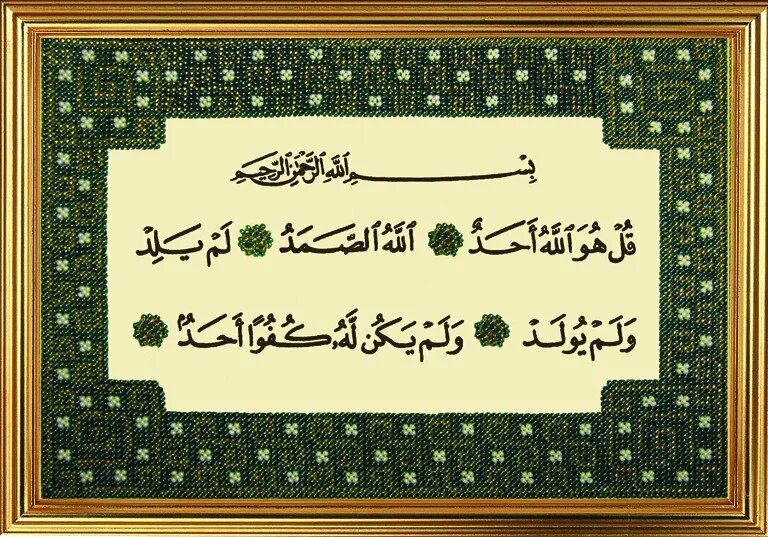 بِسْمِ ٱللَّهِ ٱلرَّحْمَٰنِ ٱلرَّحِيمِ
قُلْ هُوَ ٱللَّهُ أَحَدٌ ۝ ٱللَّهُ ٱلصَّمَدُ ۝ لَمْ يَلِدْ
وَلَمْ يُولَدْ ۝ وَلَمْ يَكُن لَّهُۥ كُفُوًا أَحَدٌۢ ۝